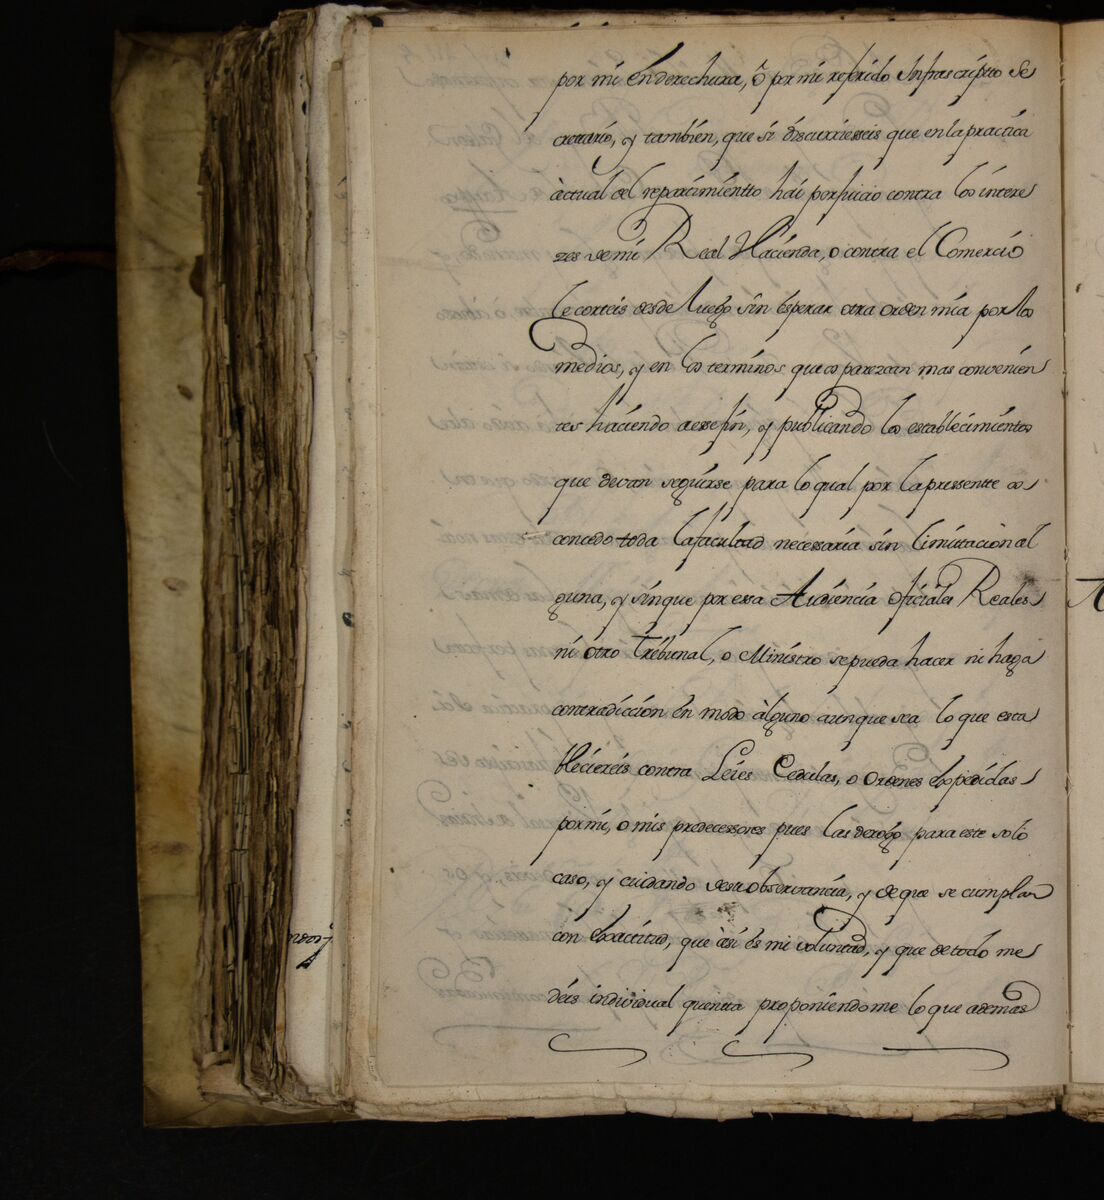 por mi en derechura, ô pr mi referido Infrascriptto Se
cretario, y tambien, que si discurriesseis que en la practica
àctual del reparcimientto hai perjuicio contra los intere
zes de mi Real Hacienda, o contra el Comercio
le corteis desde luego sin esperar otra orden mia por los
medios, y en los terminos que os parezcan mas convenien
tes haciendo a esse fin, y publicando los establecimientos
que devan seguirse para lo qual por la pressentte os
concedo toda la facultad necessaria sin limittacion al
guna, y sin que por essa Audiencia Oficiales Reales
ni otro Tribunal, o Ministro se pueda hacer ni haga
contradiccion en modo àlguno aunque sea lo que esta
bleciereis contra Leies Cedulas, o Ordenes expedidas
por mi, o mis predecessores pues las derogo para este solo
caso, y cuidando de su observancia, y de que se cumplan
con exactitud, que àsi es mi voluntad, y que de todo me
deis individual quentta proponiendome lo que ademas